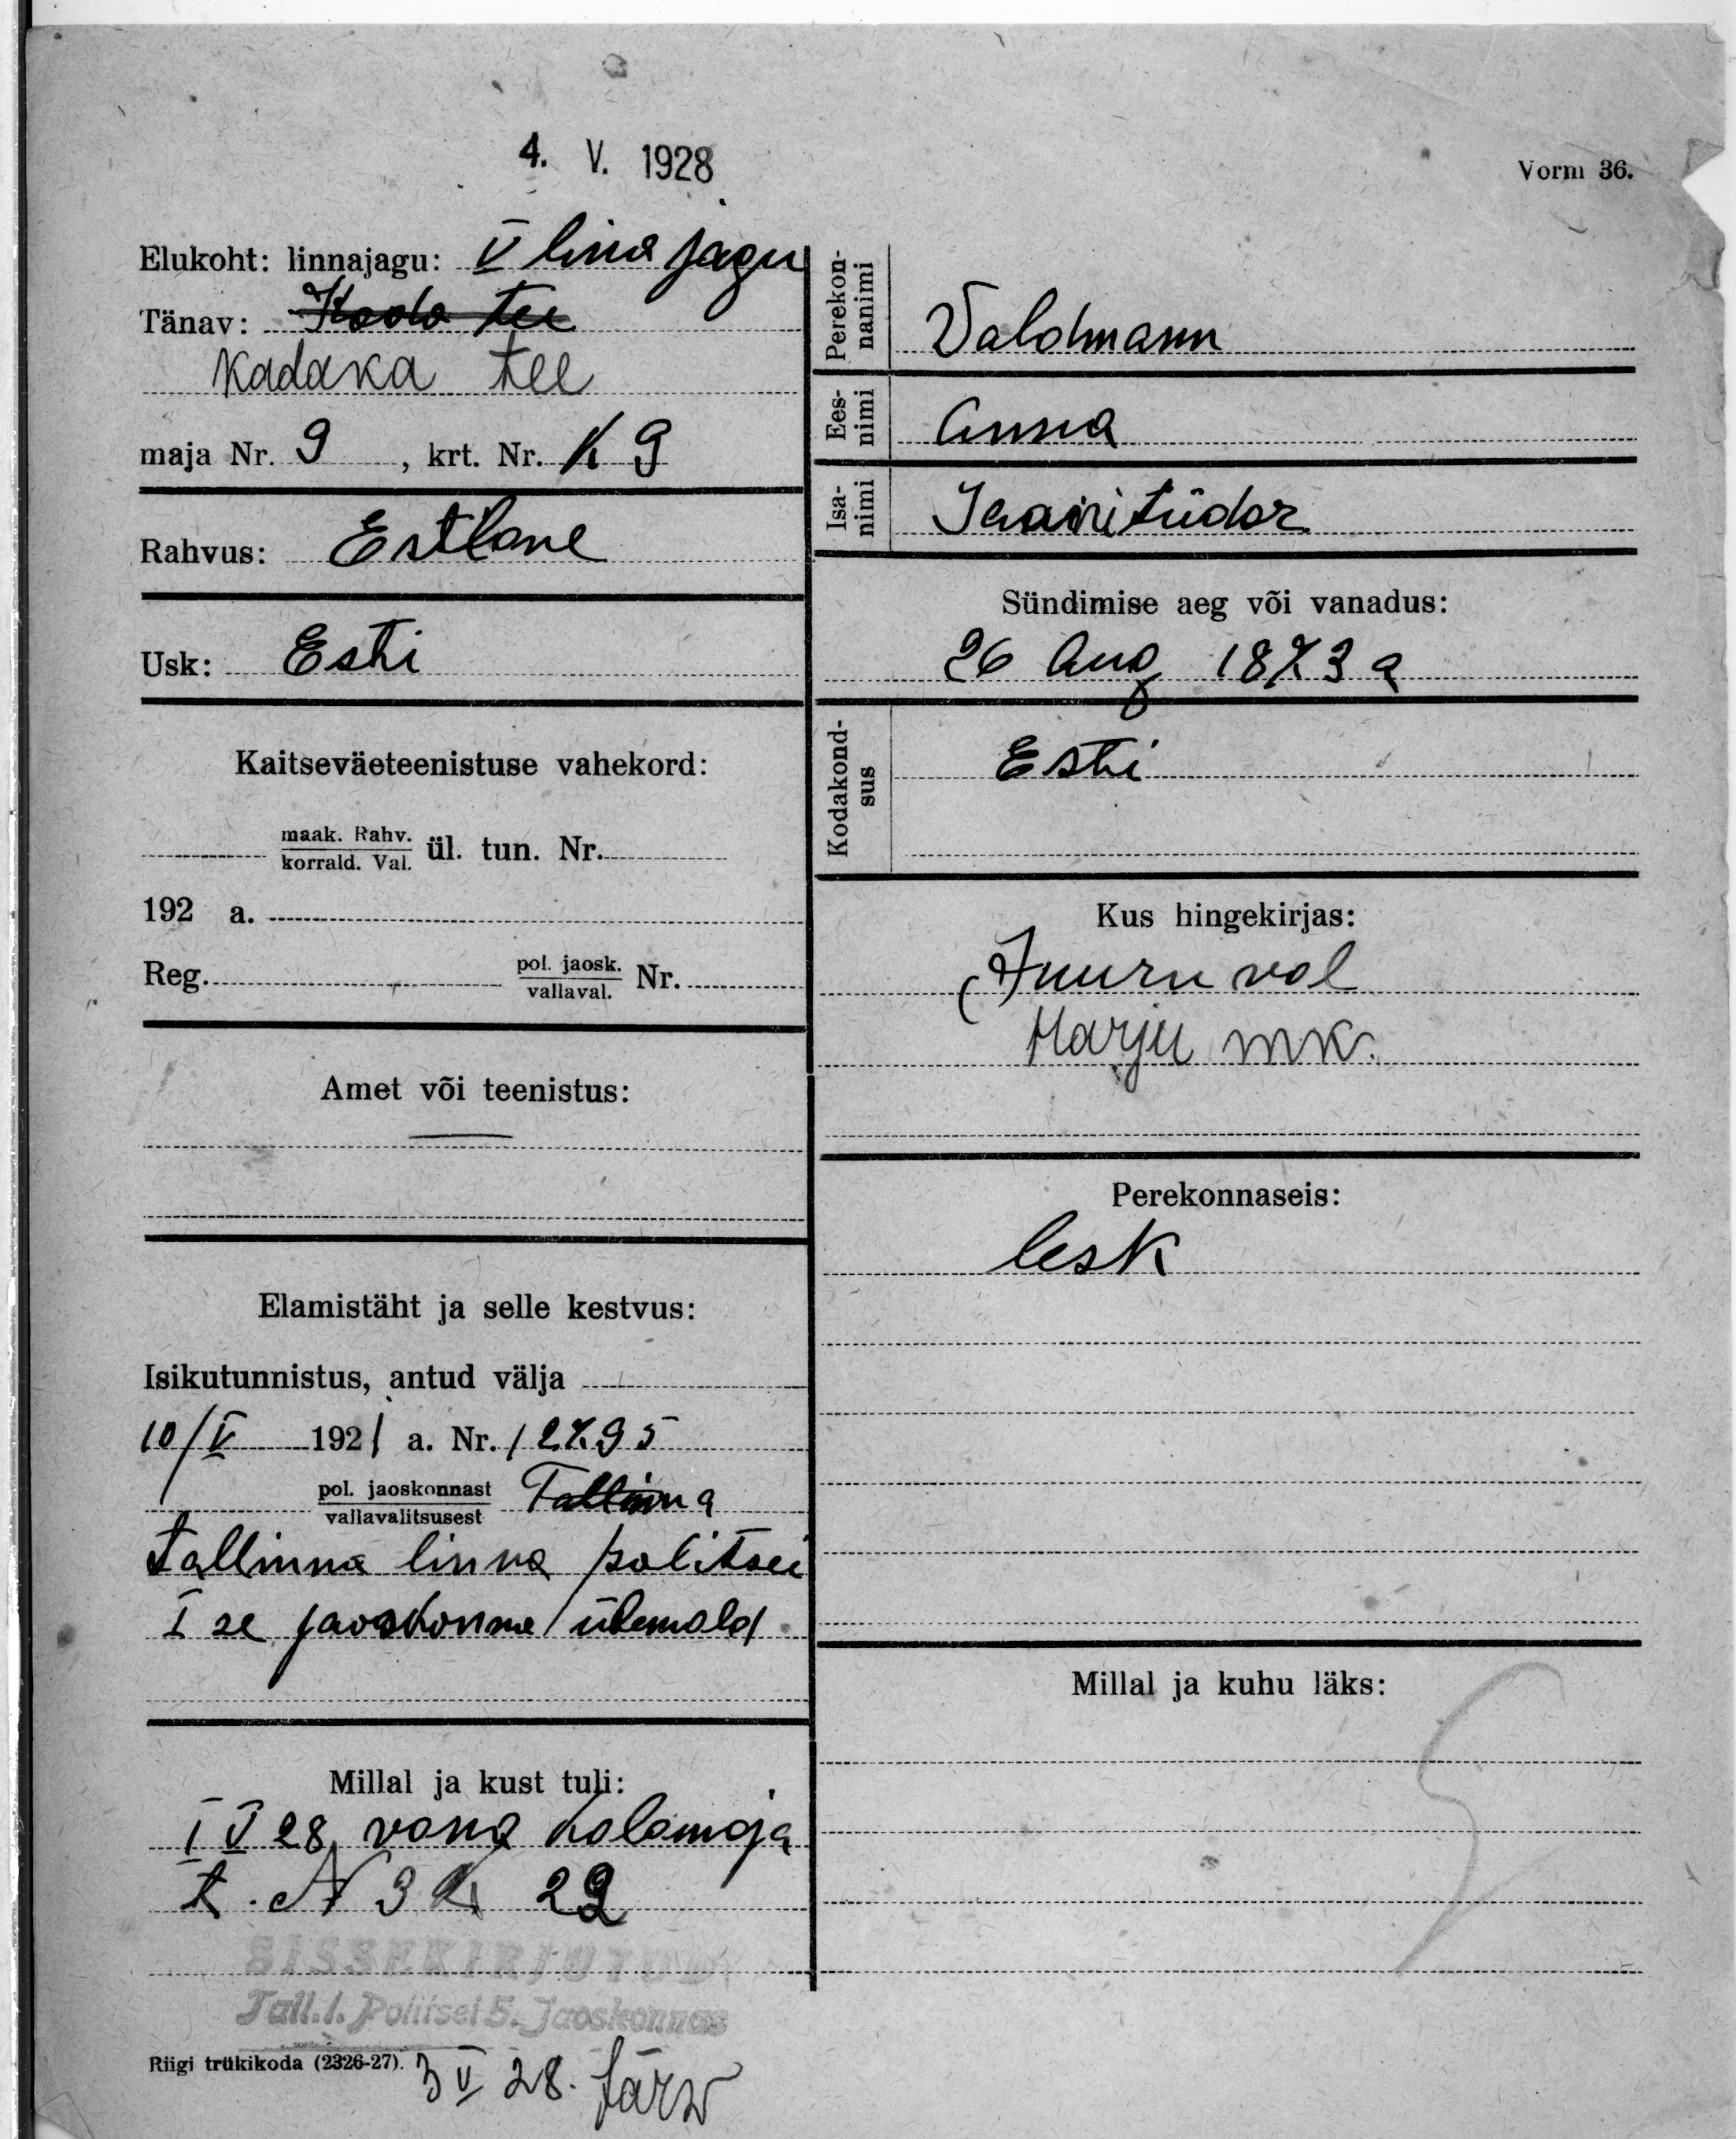 4. V. 1928
Vorm 36.
Elukoht: linnajagu: V lina jagu
Tänav: Kada tee
Kadaka tee
maja Nr. 9, krt. Nr. K 9
Rahvus: Estlane
Usk: Esti
Kaitseväeteenistuse vahekord:
maak. Rahv.
korrald. Val. ül. tun. Nr.
192 a.
Reg. pol. jaosk.
vallaval. Nr.
Amet või teenistus:
Elamistäht ja selle kestvus:
Isikutunnistus, antud välja
10/V 1921 a. Nr. 12795
pol. jaoskonnast
vallavalitsusest Tallinna
Tallinna linna politsei
I se jaoskonna ülemald
Millal ja kust tuli:
I V 28 vana Kalamaja
t. N 3 22
SISSEKIRJUTUD
Tall. l. Politsei 5. Jaoskonnas
Riigi trükikoda (2326-27).
3 V 28. Järw
Perekon-
nanimi
Valdmann
Ees-
nimi
Anna
Isa-
nimi
Jaanitüdar
Sündimise aeg või vanadus:
26 Aug 1873 a
Kodakond-
sus
Esti
Kus hingekirjas:
Juuru val
Harju mk.
Perekonnaseis:
lesk
Millal ja kuhu läks: